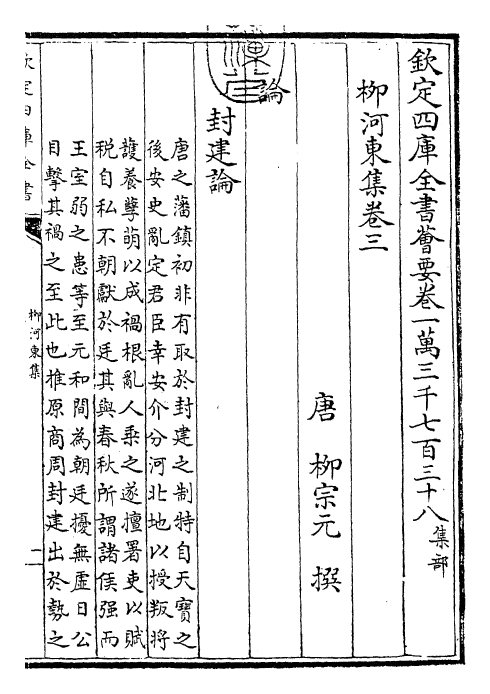 欽定四庫全書薈要卷一萬三千七百三十八集部
柳河東集卷三
唐 柳宗元 撰
論
封建論
唐之藩鎮初非有取於封建之制特自天寶之
後安史亂定君臣幸安介分河北地以授叛將
護養孽萌以成禍根亂人乘之遂擅署吏以賦
稅自私不朝獻於廷其與春秋所謂諸侯强而
王室弱之患等至元和間為朝廷擾無虛日公
目擊其禍之至此也推原商周封建出於勢之
欽定四庫全書
柳河東集